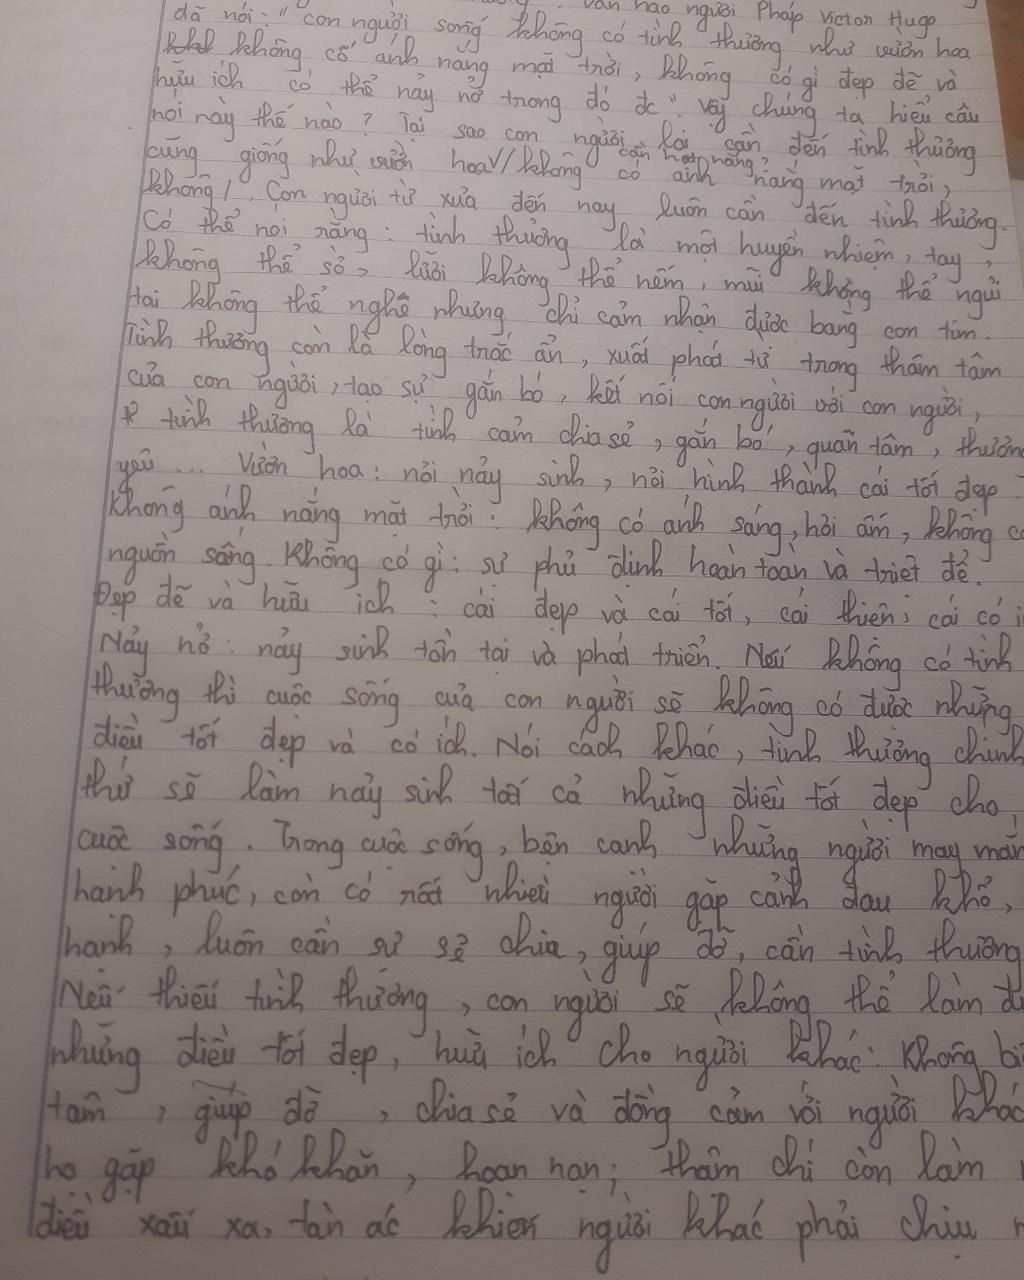 Văn hào người Pháp Victor Hugo
đã nói: " con người sống không có tình thương như vườn hoa
không có ánh nắng mặt trời, không có gì đẹp đẽ và
hữu ích có thể nảy nở trong đó đc". Vậy chúng ta hiểu câu
nói này thế nào? Tại sao con người lại cần đến tình thương
cũng giống như vườn hoa cần nắng? không có ánh nắng mặt trời,
không/. Con người từ xưa đến nay luôn cần đến tình thương.
Có thể nói rằng: tình thương là một huyền nhiệm, tay
không thể sờ, lưỡi không thể nếm, mũi không thể ngửi
tai không thể nghe nhưng chỉ cảm nhận được bằng con tim.
Tình thương còn là lòng trắc ẩn, xuất phát từ trong thâm tâm
của con người, tạo sự gắn bó, kết nối con người với con người,
tình thương là tình cảm chia sẻ, gắn bó, quan tâm, thương
yêu ... Vườn hoa: nơi nảy sinh, nơi hình thành cái tốt đẹp
Không ánh nắng mặt trời: không có ánh sáng, hơi ấm, không
nguồn sống. Không có gì: sự phủ định hoàn toàn và triệt để.
Đẹp đẽ và hữu ích: cái đẹp và cái tốt, cái thiện, cái có
Nảy nở: nảy sinh tồn tại và phát triển. Nếu không có tình
thương thì cuộc sống của con người sẽ không có được những
điều tốt đẹp và có ích. Nói cách khác, tình thương chính
thứ sẽ làm nảy sinh tất cả những điều tốt đẹp cho
cuộc sống. Trong cuộc sống, bên cạnh những người may mắn
hạnh phúc, còn có rất nhiều người gặp cảnh đau khổ,
hạnh, luôn cần sự sẻ chia, giúp đỡ, cần tình thương
Nếu thiếu tình thương, con người sẽ không thể làm
những điều tốt đẹp, hữu ích cho người khác: Không
tâm, giúp đỡ, chia sẻ và đồng cảm với người khác
họ gặp khó khăn, hoạn nạn; thậm chí còn làm
điều xấu xa, tàn ác khiến người khác phải chịu